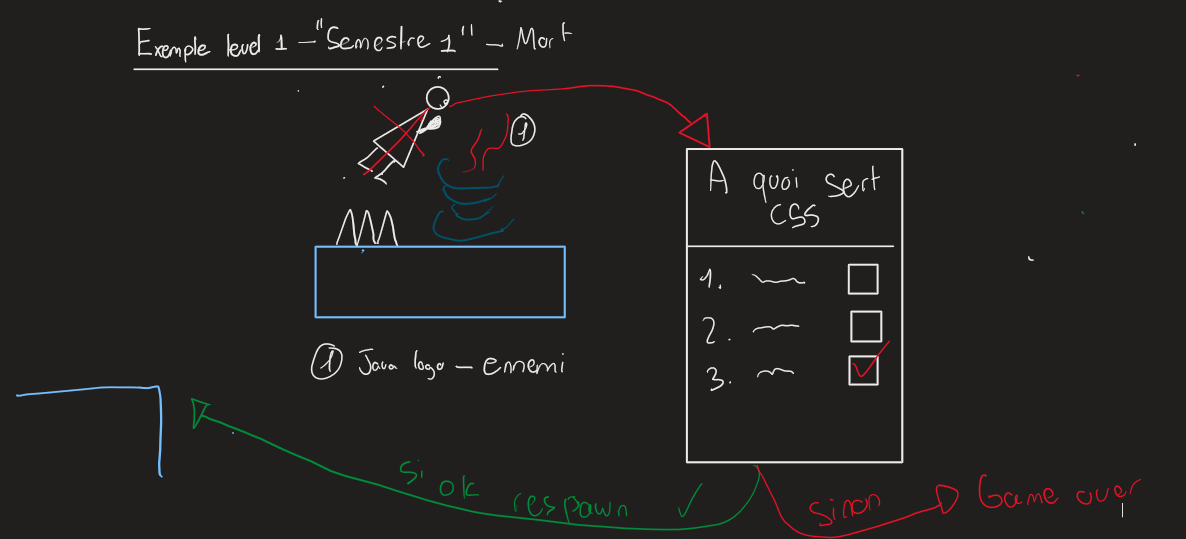 Exemple level 1 – "Semestre 1" – Mort
1
A quoi sert
CSS
1.
2.
3.
1 Java logo – ennemi
Si ok respawn
sinon
Game over